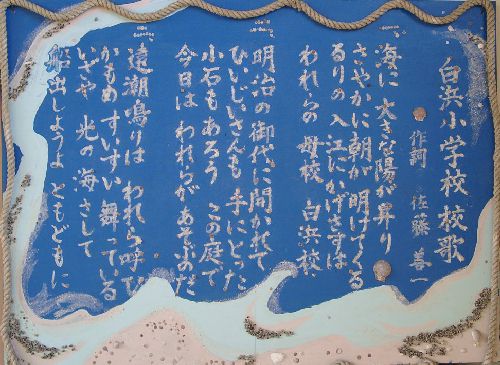 白浜小学校校歌
作詞 佐藤善一
海に 大きな陽が昇り
さやかに朝が 明けてくる
るりの入江に かげさすは
われらの 母校 白浜校
明治の御代に 開かれて
ひいじいさんも 手にとった
小石もあろう この庭で
今日は われらが あそぶのだ
遠潮鳴りは われら呼び
かもめ すいすい 舞っている
いざや 光の海 さして
船出しようよ ともどもに